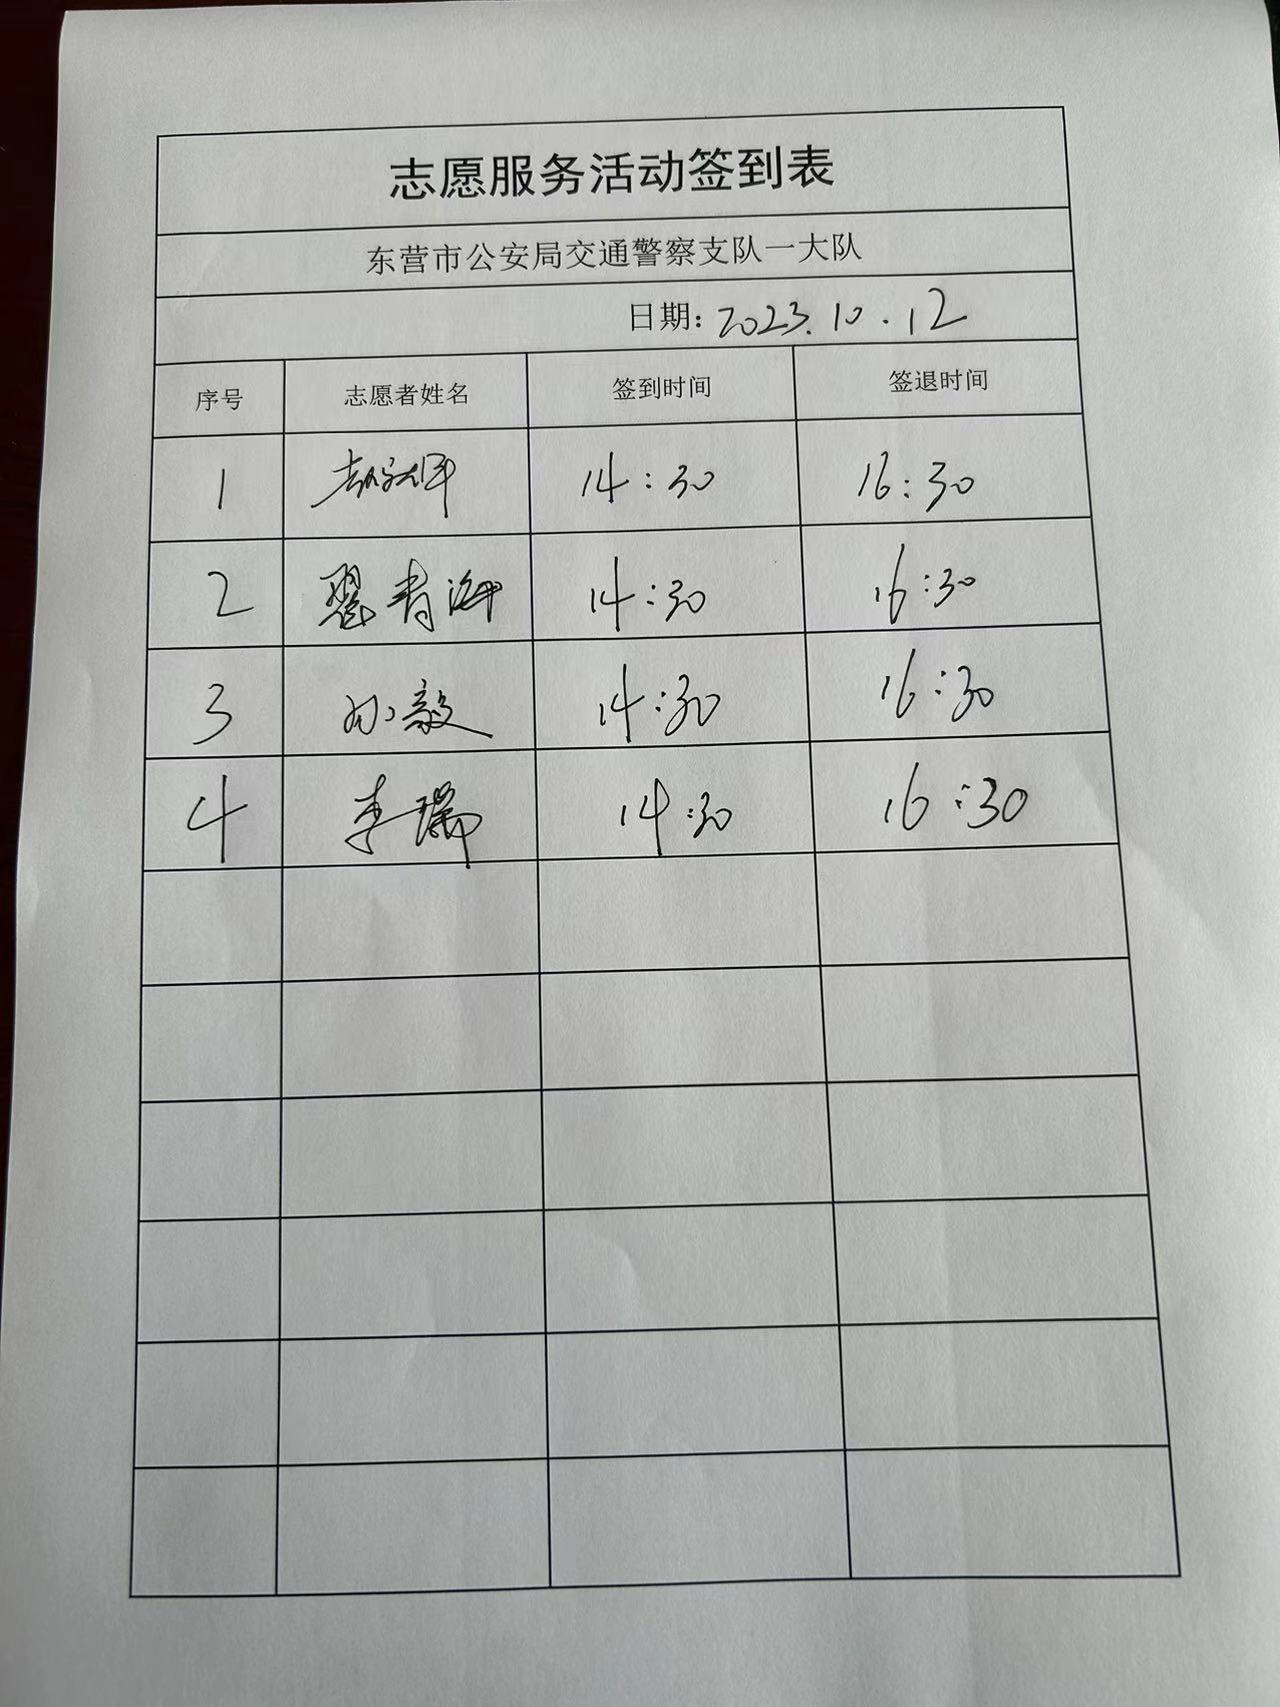 志愿服务活动签到表
东营市公安局交通警察支队一大队
日期: 2023.10.12
序号 志愿者姓名 签到时间 签退时间
1 14:30 16:30
2 翟青海 14:30 16:30
3 孙毅 14:30 16:30
4 李瑞 14:30 16:30